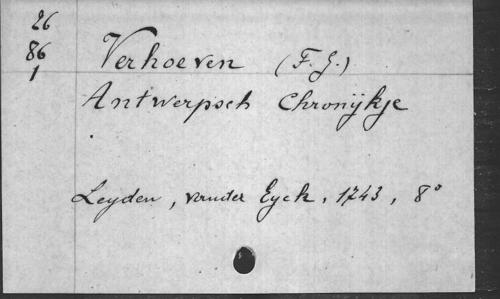 26
86
1
Verhoeven (F. G.)
Antwerpsch Chronijkje
Leyden, vander Eyck, 1743, 8°